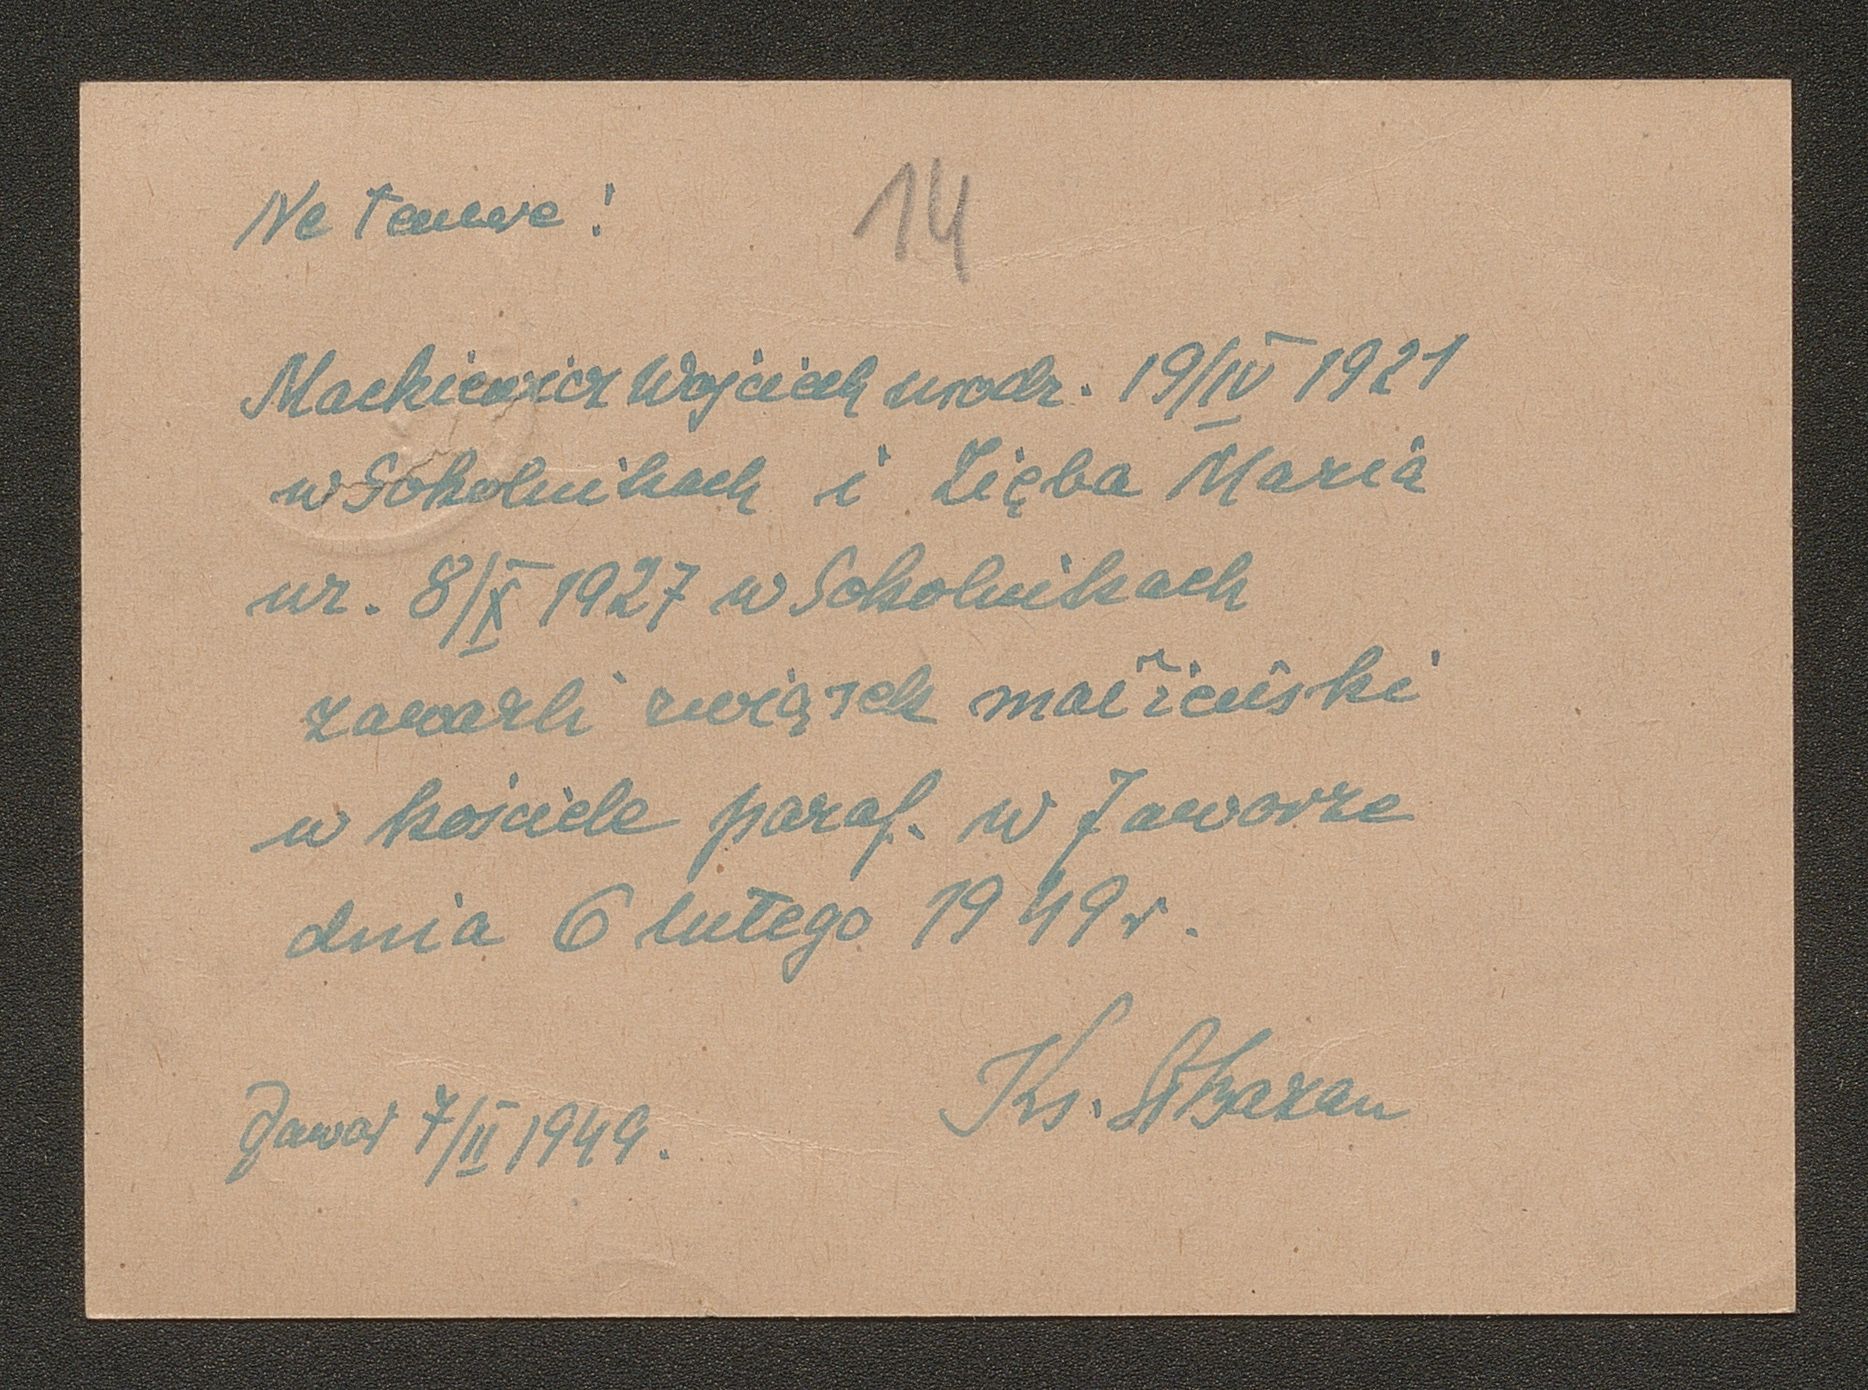 Ne Temere!
14
Mackiewicz Wojciech urodz. 19/IV 1921
w Sokolnikach i Zięba Maria
ur. 8/X 1927 w Sokolnikach
zawarli związek małżeński
w kościele paraf. w Jaworze
dnia 6 lutego 1949 r.
Ks.
Jawor 7/II 1949.